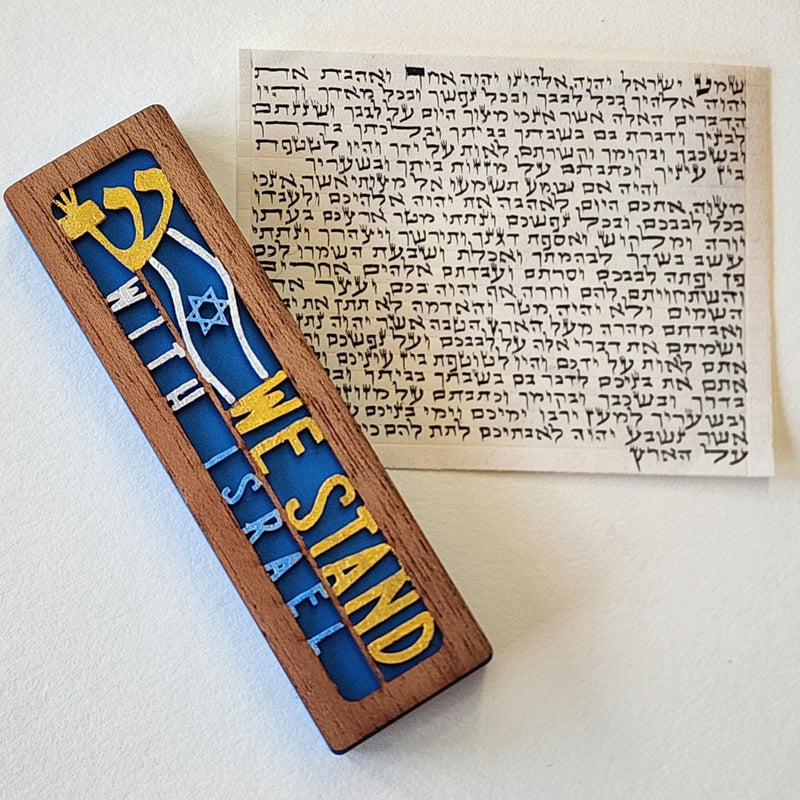 ש
WE STAND
WITH ISRAEL
שמע ישראל יהוה אלהינו יהוה אחד ואהבת את
יהוה אלהיך בכל לבבך ובכל נפשך ובכל מאדך והיו
הדברים האלה אשר אנכי מצוך היום על לבבך ושננתם
לבניך ודברת בם בשבתך בביתך ובלכתך בדרך
ובשכבך ובקומך וקשרתם לאות על ידך והיו לטטפת
בין עיניך וכתבתם על מזזות ביתך ובשעריך
והיה אם שמע תשמעו אל מצותי אשר אנכי
מצוה אתכם היום לאהבה את יהוה אלהיכם ולעבדו
בכל לבבכם ובכל נפשכם ונתתי מטר ארצכם בעתו
יורה ומלקוש ואספת דגנך ותירשך ויצהרך ונתתי
עשב בשדך לבהמתך ואכלת ושבעת השמרו לכם
פן יפתה לבבכם וסרתם ועבדתם אלהים אחרים
והשתחויתם להם וחרה אף יהוה בכם ועצר את
השמים ולא יהיה מטר והאדמה לא תתן את
ואבדתם מהרה מעל הארץ הטבה אשר יהוה נתן
ושמתם את דברי אלה על לבבכם ועל
אתם לאות על ידכם והיו לטוטפת בין עיניכם
אתם את בניכם לדבר בם בשבתך בביתך
בדרך ובשכבך ובקומך וכתבתם על
ובשעריך למען ירבו ימיכם וימי בניכם
אשר נשבע יהוה לאבתיכם לתת להם
על הארץ